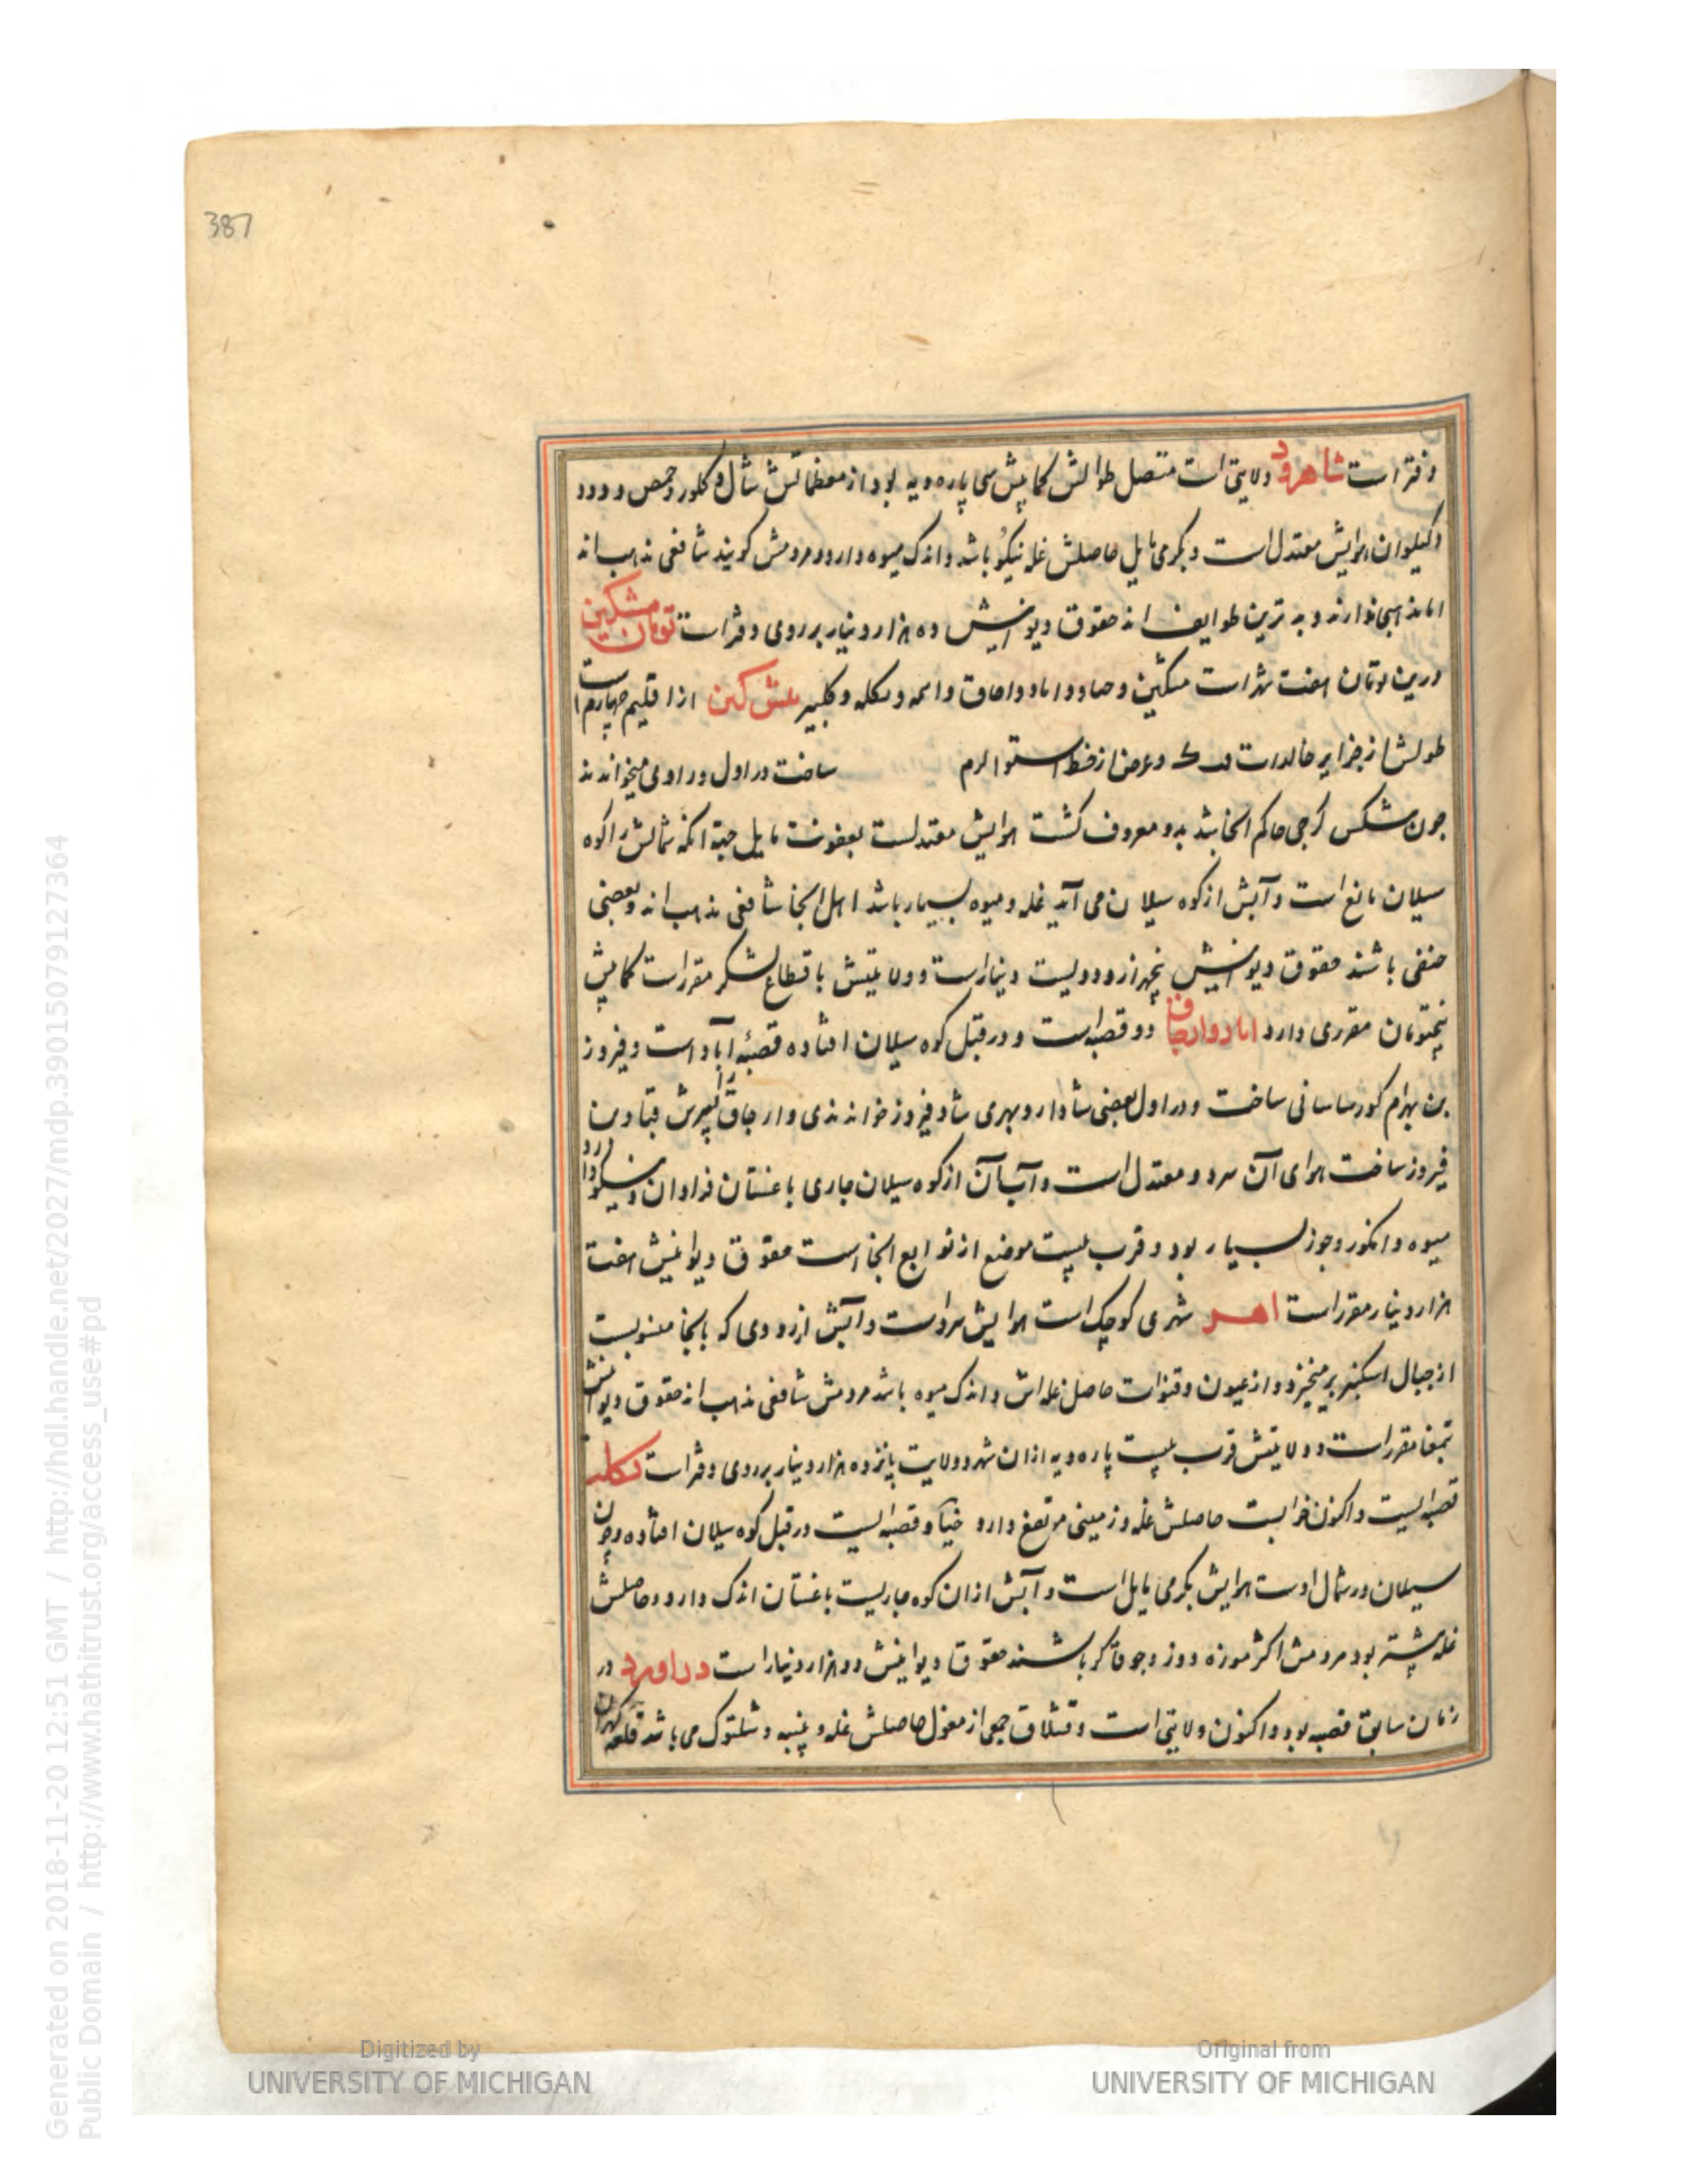 387
دفتر است شاهرود ولایتی است متصل طوالش کمابیش سی پاره دیه بود از معظماتش شال و کلور و حمص و درود
و کیلوان هوایش معتدل است و بگرمی مایل حاصلش غله نیکو باشد و اندک میوه دارد و مردمش گویند شافعی مذهب اند
اما مذهبی ندارند و بدترین طوایف اند حقوق دیوانیش ده هزار دینار بر روی دفتر است تومان مشکین
درین تومان هفت شهر است مشکین و حیاو و اناد و ارجاق و اهر و تکله و کلیبر مشکین از اقلیم چهارم است
طولش از جزایر خالدات فب ک و عرض از خط استوا لرم ساخت در اول وراوی میخواندند
چون مشکین گرجی حاکم انجا شد بدو معروف گشت هوایش معتدلست بعفونت مایل جهة انکه شمالش را کوه
سیلان مانع است و آبش از کوه سیلان می آید غله و میوه بسیار باشد اهل انجا شافعی مذهب اند و بعضی
حنفی باشند حقوق دیوانیش پنجهزار و دویست دینار است و ولایتیش باقطاع لشکر مقرر است کمابیش
پنجتومان مقرری دارد اناد و ارجاق دو قصبه است و در قبل کوه سیلان افتاده قصبهٔ آباد است و فیروز
بن بهرام کور ساسانی ساخت و در اول بعضی شادار و بهری شاد فیروز خوانده اندی و ارجاق را پسرش قباد بن
فیروز ساخت هوای آن سرد و معتدل است و آب آن از کوه سیلان جاری باغستان فراوان و نیکو دارد
میوه و انکور و جوز بسیار بود و قرب بیست موضع از توابع انجا است حقوق دیوانیش هفت
هزار دینار مقرر است اهر شهری کوچک است هوایش سرد است و آبش از رودی که بانجا منسوبست
از جبال اسکنبر برمیخیزد و از عیون و قنوات حاصل غله اش و اندک میوه باشد مردمش شافعی مذهب اند حقوق دیوانیش
بتمغا مقرر است و ولایتش قرب بیست پاره دیه از ان شهر و ولایت پانزده هزار دینار بر روی دفتر است تکله
قصبه ایست و اکنون خرابست حاصلش غله و زمینی مرتفع دارد خیاو قصبه ایست در قبل کوه سیلان افتاده و چون
سیلان در شمال اوست هوایش بگرمی مایل است و آبش از ان کوه جاریست باغستان اندک دارد و حاصلش
غله بیشتر بود مردمش اکثر موزه دوز و چوخاگر باشند حقوق دیوانیش دو هزار دینار است دراورد در
زمان سابق قصبه بود و اکنون ولایتی است و قشلاق جمعی از مغول حاصلش غله و پنبه و شلتوک می باشد قلعه کهران
Generated on 2018-11-20 12:51 GMT / http://hdl.handle.net/2027/mdp.39015079127364
Public Domain / http://www.hathitrust.org/access_use#pd
Digitized by
UNIVERSITY OF MICHIGAN
Original from
UNIVERSITY OF MICHIGAN